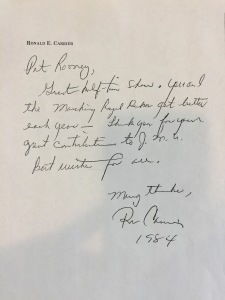 RONALD E. CARRIER
Pat Rooney,
Great half-time show. You and
the Marching Royal Dukes get better
each year — Thank you for your
great contribution to J.M.U.
Best wishes for all.
Many thanks,
Ron Carrier
1984